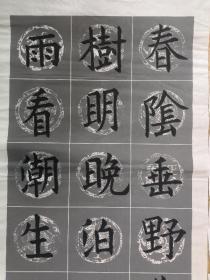 春陰垂野
樹明晚泊
雨看潮生